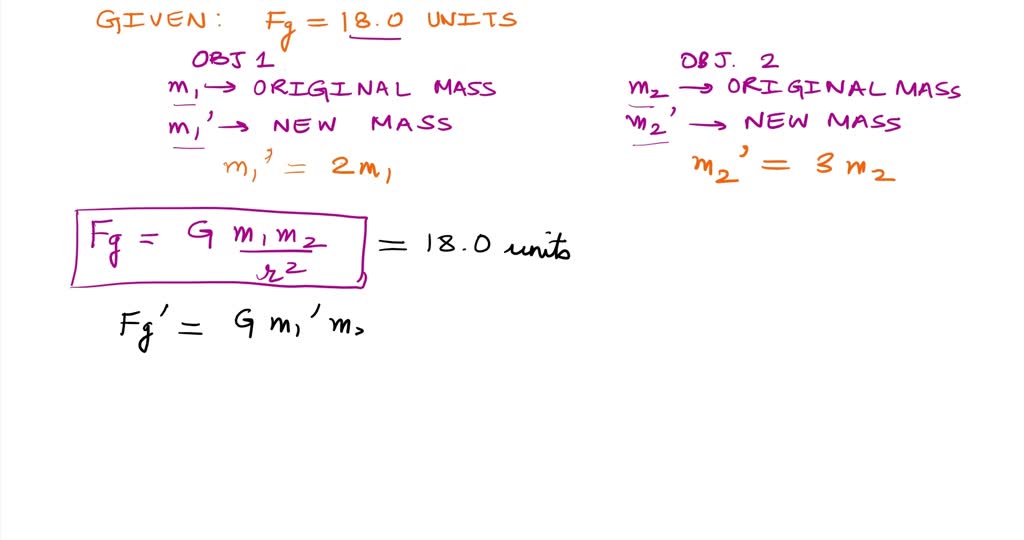 GIVEN: Fg = 18.0 UNITS
OBJ 1
m₁ → ORIGINAL MASS
m₁' → NEW MASS
m₁' = 2m₁
OBJ. 2
m₂ → ORIGINAL MASS
m₂' → NEW MASS
m₂' = 3m₂
Fg = G m₁m₂/r² = 18.0 units
Fg' = G m₁' m₂